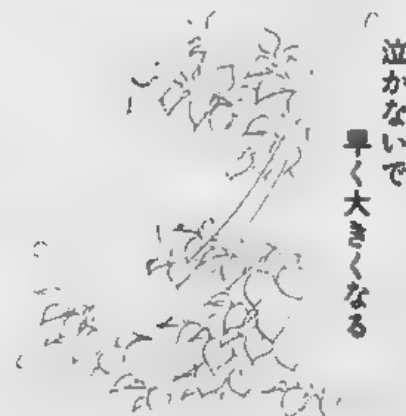 泣かないで
早く大きくなる